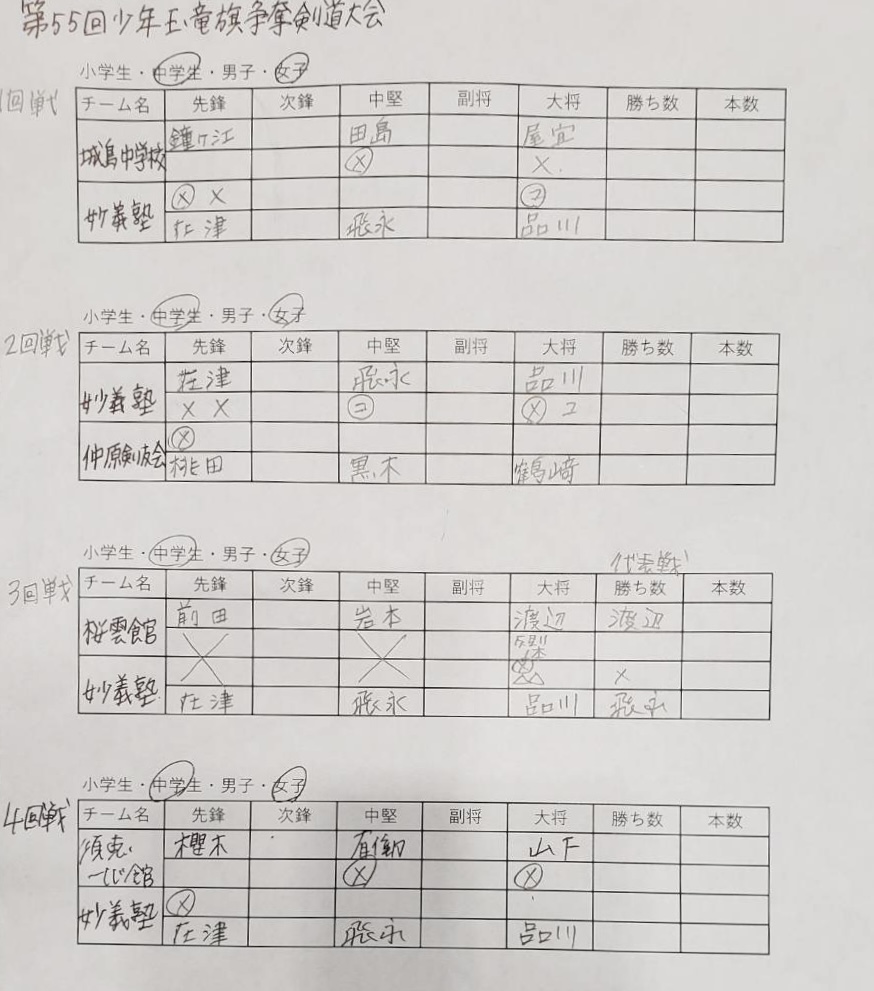 第55回少年玉竜旗争奪剣道大会
小学生・中学生・男子・女子
1回戦
チーム名 先鋒 次鋒 中堅 副将 大将 勝ち数 本数
城島中学校 鐘ヶ江 田島
メ メ
妙義塾 メ メ コ
在津 飛永 品川
小学生・中学生・男子・女子
2回戦
チーム名 先鋒 次鋒 中堅 副将 大将 勝ち数 本数
妙義塾 在津 飛永 品川
メ メ コ メ コ
仲原剣友会 メ
桃田 黒木 鶴﨑
小学生・中学生・男子・女子
代表戦
3回戦
チーム名 先鋒 次鋒 中堅 副将 大将 勝ち数 本数
桜雲館 前田 岩本 渡辺 渡辺
妙義塾 メ
在津 飛永 品川 飛永
小学生・中学生・男子・女子
4回戦
チーム名 先鋒 次鋒 中堅 副将 大将 勝ち数 本数
須恵 櫻木 山下
メ メ
妙義塾 メ
在津 飛永 品川